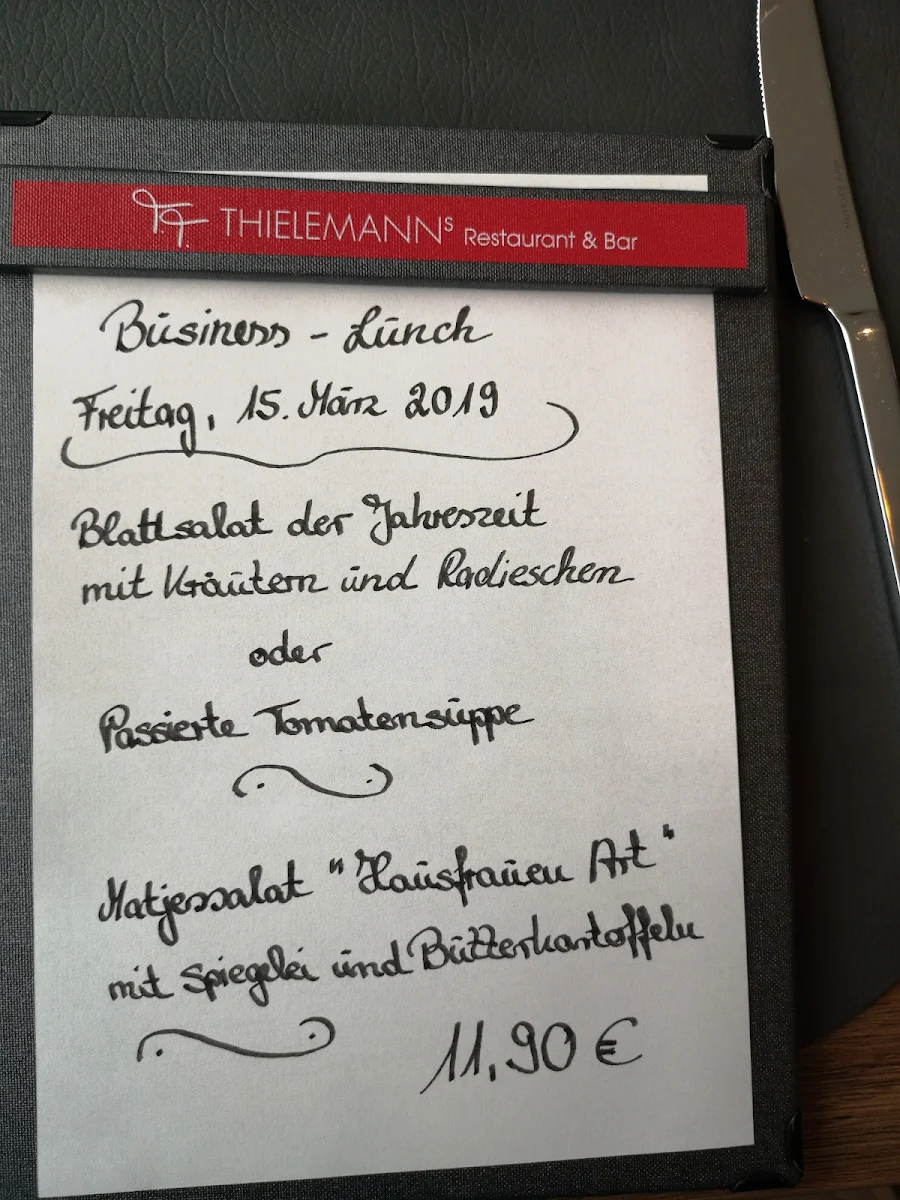 TF THIELEMANNs Restaurant & Bar
Business - Lunch
Freitag, 15. März 2019
Blattsalat der Jahreszeit
mit Kräutern und Radieschen
oder
Passierte Tomatensuppe
Matjessalat "Hausfrauen Art"
mit Spiegelei und Butterkartoffeln
11,90 €